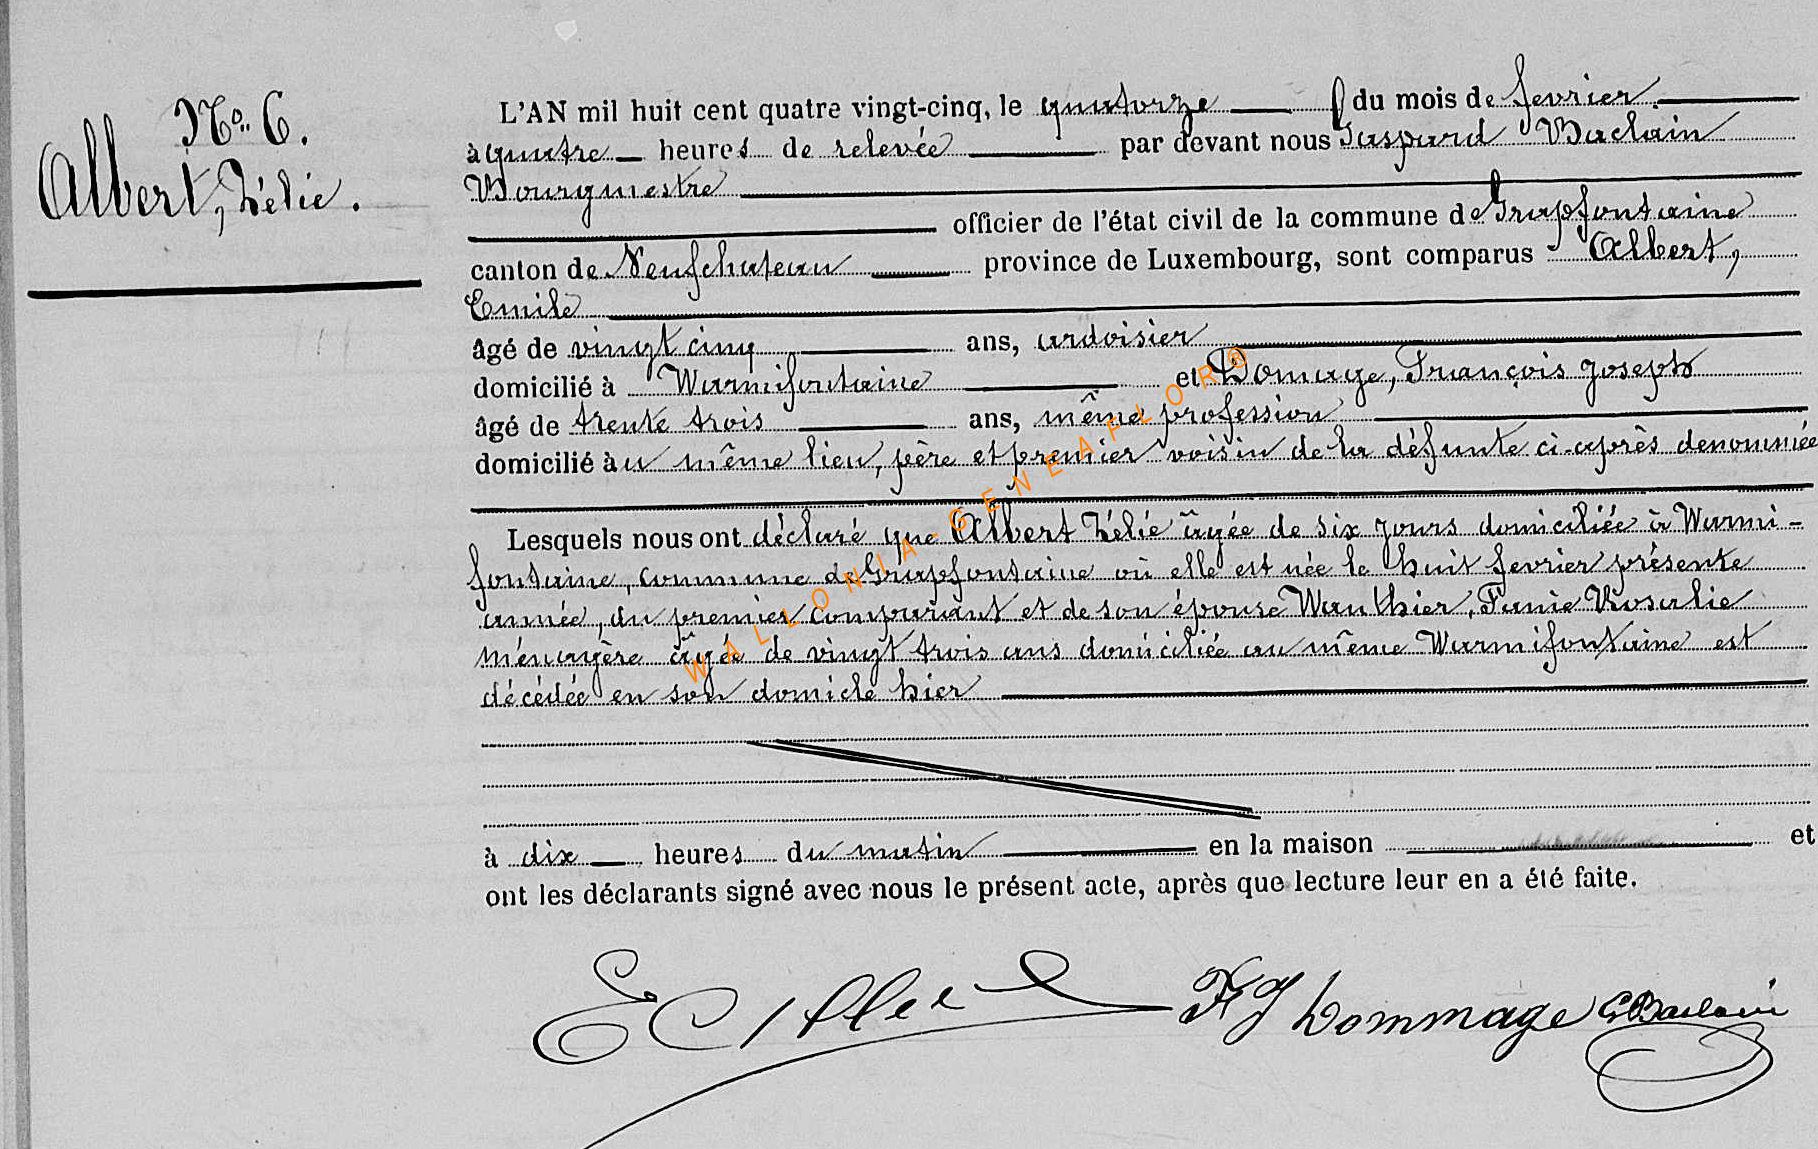 No. 6.
Albert, Zélie.
L'AN mil huit cent quatre vingt-cinq, le quatorze du mois de fevrier.
à quatre heures de relevée par devant nous Gaspard Baclain
Bourgmestre
officier de l'état civil de la commune de Grapfontaine
canton de Neufchateau province de Luxembourg, sont comparus Albert,
Emile
âgé de vingt cinq ans, ardoisier
domicilié à Warmifontaine et Domage, François Joseph
âgé de trente trois ans, même profession
domicilié au même lieu, père et premier voisin de la défunte ci-après denommée
Lesquels nous ont déclaré que Albert Zélie âgée de six jours domiciliée à Warmi-
fontaine, commune de Grapfontaine où elle est née le huit fevrier présente
année, du premier comparant et de son épouse Wauthier, Fanie Rosalie
ménagère âgée de vingt trois ans domiciliée au même Warmifontaine est
décédée en son domicle hier
à dix heures du matin en la maison et
ont les déclarants signé avec nous le présent acte, après que lecture leur en a été faite.
FJ Dommage G Baclain
WALLONIA-GENEAFLOR®